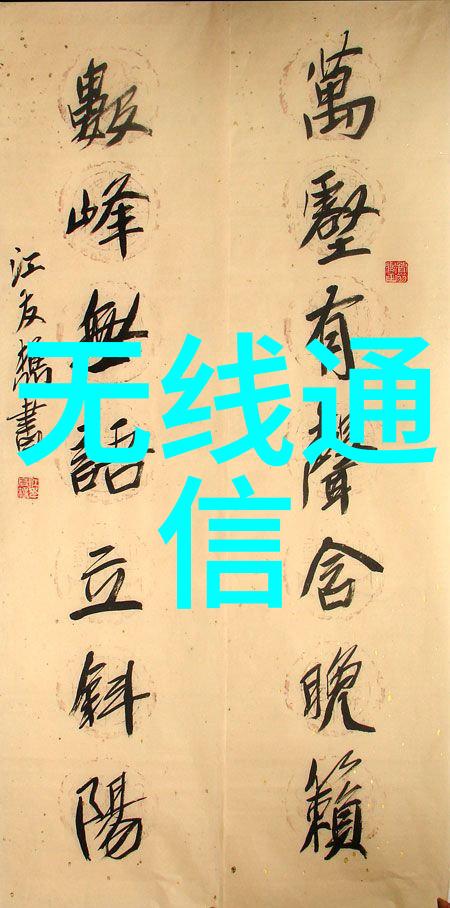 萬壑有聲含晚籟
數峰無語立斜陽
江友樵書
无线通
信